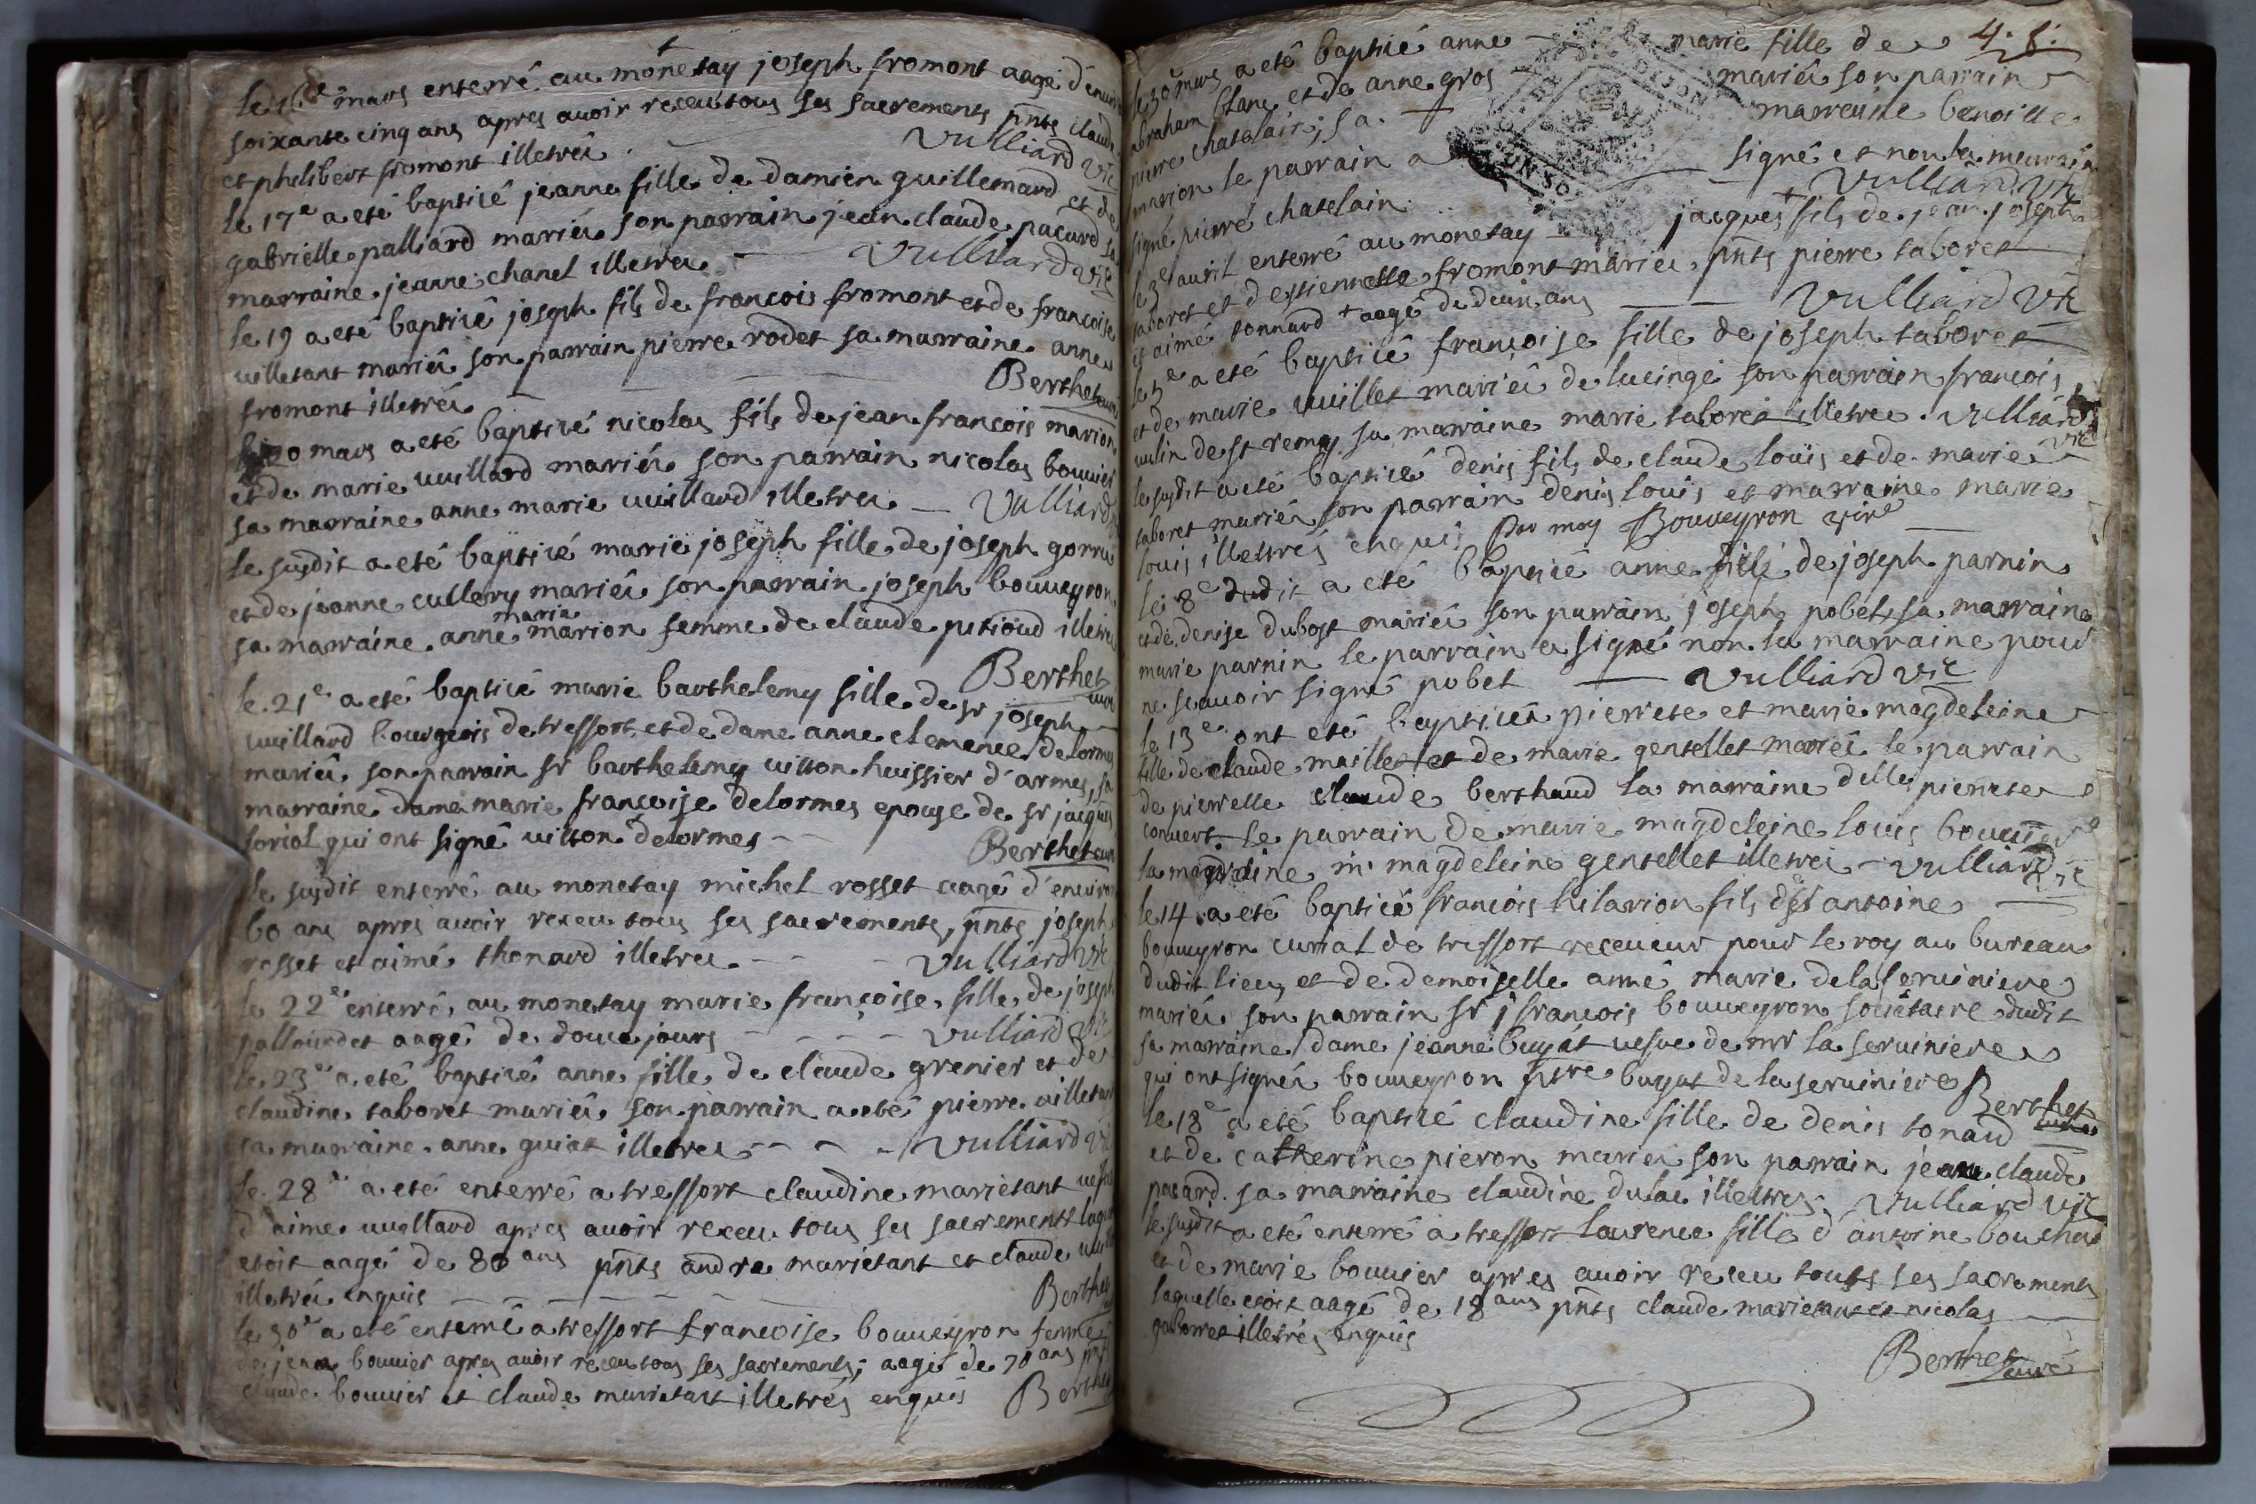 le 16e mars enterré au monetay joseph fromont aagé d'environ
soixante cinq ans apres avoir receu tous ses sacrements pnts claude
et philibert fromont illetréz Vulliard vic
le 17e a eté baptizé jeanne fille de damien guillemard et de
gabrielle palliard mariéz son parrain jean claude pacard sa
marraine jeanne chanel illetrez Vulliard vic
le 19 a eté baptizé joseph fils de françois fromont et de françoise
villetant mariéz son parrain pierre rodet sa marraine anne
fromont illetréz Berthet curé
le 20 mars a eté baptizé nicolas fils de jean françois marion
et de marie vuillard mariéz son parrain nicolas bouvier
sa marraine anne marie vuillard illetrez Vulliard
le susdit a eté baptizé marie joseph fille de joseph gorru
et de jeanne cullery mariéz son parrain joseph bouveyron
sa marraine anne marie marion femme de claude petioud illetrez
Berthet curé
le 21e a eté baptizé marie barthelemy fille de sr joseph
vuillard bourgeois de tressort et de dame anne clemence delormes
mariéz son parrain sr barthelemy vitton huissier d'armes, sa
marraine dame marie françoise delormes epouse de sr jacques
soriol qui ont signé vitton delormes
Berthet curé
le susdit enterré au monetay michel rosset aagé d'environ
60 ans apres avoir receu tous ses sacrements, pnts joseph
rosset et aimé thonard illetrez Vulliard vic
le 22e enterré au monetay marie françoise fille de joseph
pallourdet aagé de douze jours Vulliard vic
le 23e a eté baptizé anne fille de claude grenier et de
claudine taboret mariéz son parrain a eté pierre villetant
sa marraine anne guiat illetrez Vulliard vic
le 28e a eté enterré a tressort claudine marietant vefve
d'aime vuillard apres avoir receu tous ses sacrements laquelle
etoit aagé de 80 ans pnts andre marietant et claude
illetréz enquis Berthet
le 30e a eté enterré a tressort françoise bouveyron femme
de jean bouvier apres avoir receu tous ses sacrements; aagé de 70 ans pnts
claude bouvier et claude marietant illetrés enquis Berthet
4. f.
le 30 mars a eté baptizé anne marie fille de
abraham blanc et de anne gros mariéz son parrain
pierre chatelain; sa marraine benoitte
marion le parrain a signé et non la marraine
signé pierre chatelain Vulliard vic
le 3e avril enterré au monetay jacques fils de jean joseph
taboret et d'estiennette fromont mariez, pnts pierre taboret
et aimé tonnard + aagé de deux ans Vulliard vic
le 5e a eté baptizé françoise fille de joseph taboret
et de marie vuillet mariéz de lucinge son parrain françois
vulin de st remy sa marraine marie taboret illetrez. Vulliard vic
le susdit a eté baptizé denis fils de claude louis et de marie
taboret mariéz son parrain denis louis et marraine marie
louis illetrés enquis Par moy Bouveyron vire
le 8e dudit a eté baptizé anne fille de joseph parnin
et de denise dubost mariéz son parrain joseph pobet, sa marraine
marie parnin le parrain a signé non la marraine pour
ne scavoir signé pobet Vulliard vic
le 13e ont eté baptizés pierrete et marie magdeleine
fille de claude maillet et de marie gentellet mariéz le parrain
de pierrette claude berthaud la marraine dlle pierrete
convert. le parrain de marie magdeleine louis bouvier
la marraine magdeleine gentellet illetrez Vulliard vic
le 14 a eté baptizé françois hilarion fils de sr antoine
bouveyron curial de tressort receveur pour le roy au bureau
dudit lieu, et de demoiselle anne marie de la serviniere
mariéz son parrain sr j françois bouveyron sociétaire dudit
sa marraine dame jeanne buyat vefve de mr la serviniere
qui ont signéz bouveyron ptre buyat de la serviniere Berthet curé
le 18e a eté baptizé claudine fille de denis tonard
et de catherine pieron mariez son parrain jean claude
pacard. sa marraine claudine dulac illetrez. Vulliard vic
le susdit a eté enterré a tressort laurence fille d'antoine bouchard
et de marie bouvier apres avoir receu touts ses sacrements
laquelle etoit aagé de 18 ans pnts claude marietant et nicolas
gaborret illetrés enquis
Berthet curé